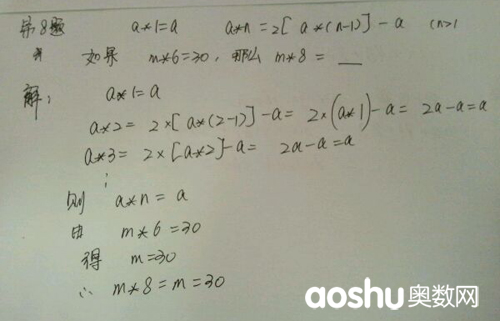 第8题 a*1=a a*n=2[a*(n-1)]-a (n>1
* 如果 m*6=30, 那么 m*8=__
解: a*1=a
a*2= 2×[a*(2-1)]-a= 2×(a*1)-a= 2a-a=a
a*3= 2×[a*2]-a= 2a-a=a
⋮
则 a*n=a
由 m*6=30
得 m=30
∴ m*8=m=30
aoshu奥数网